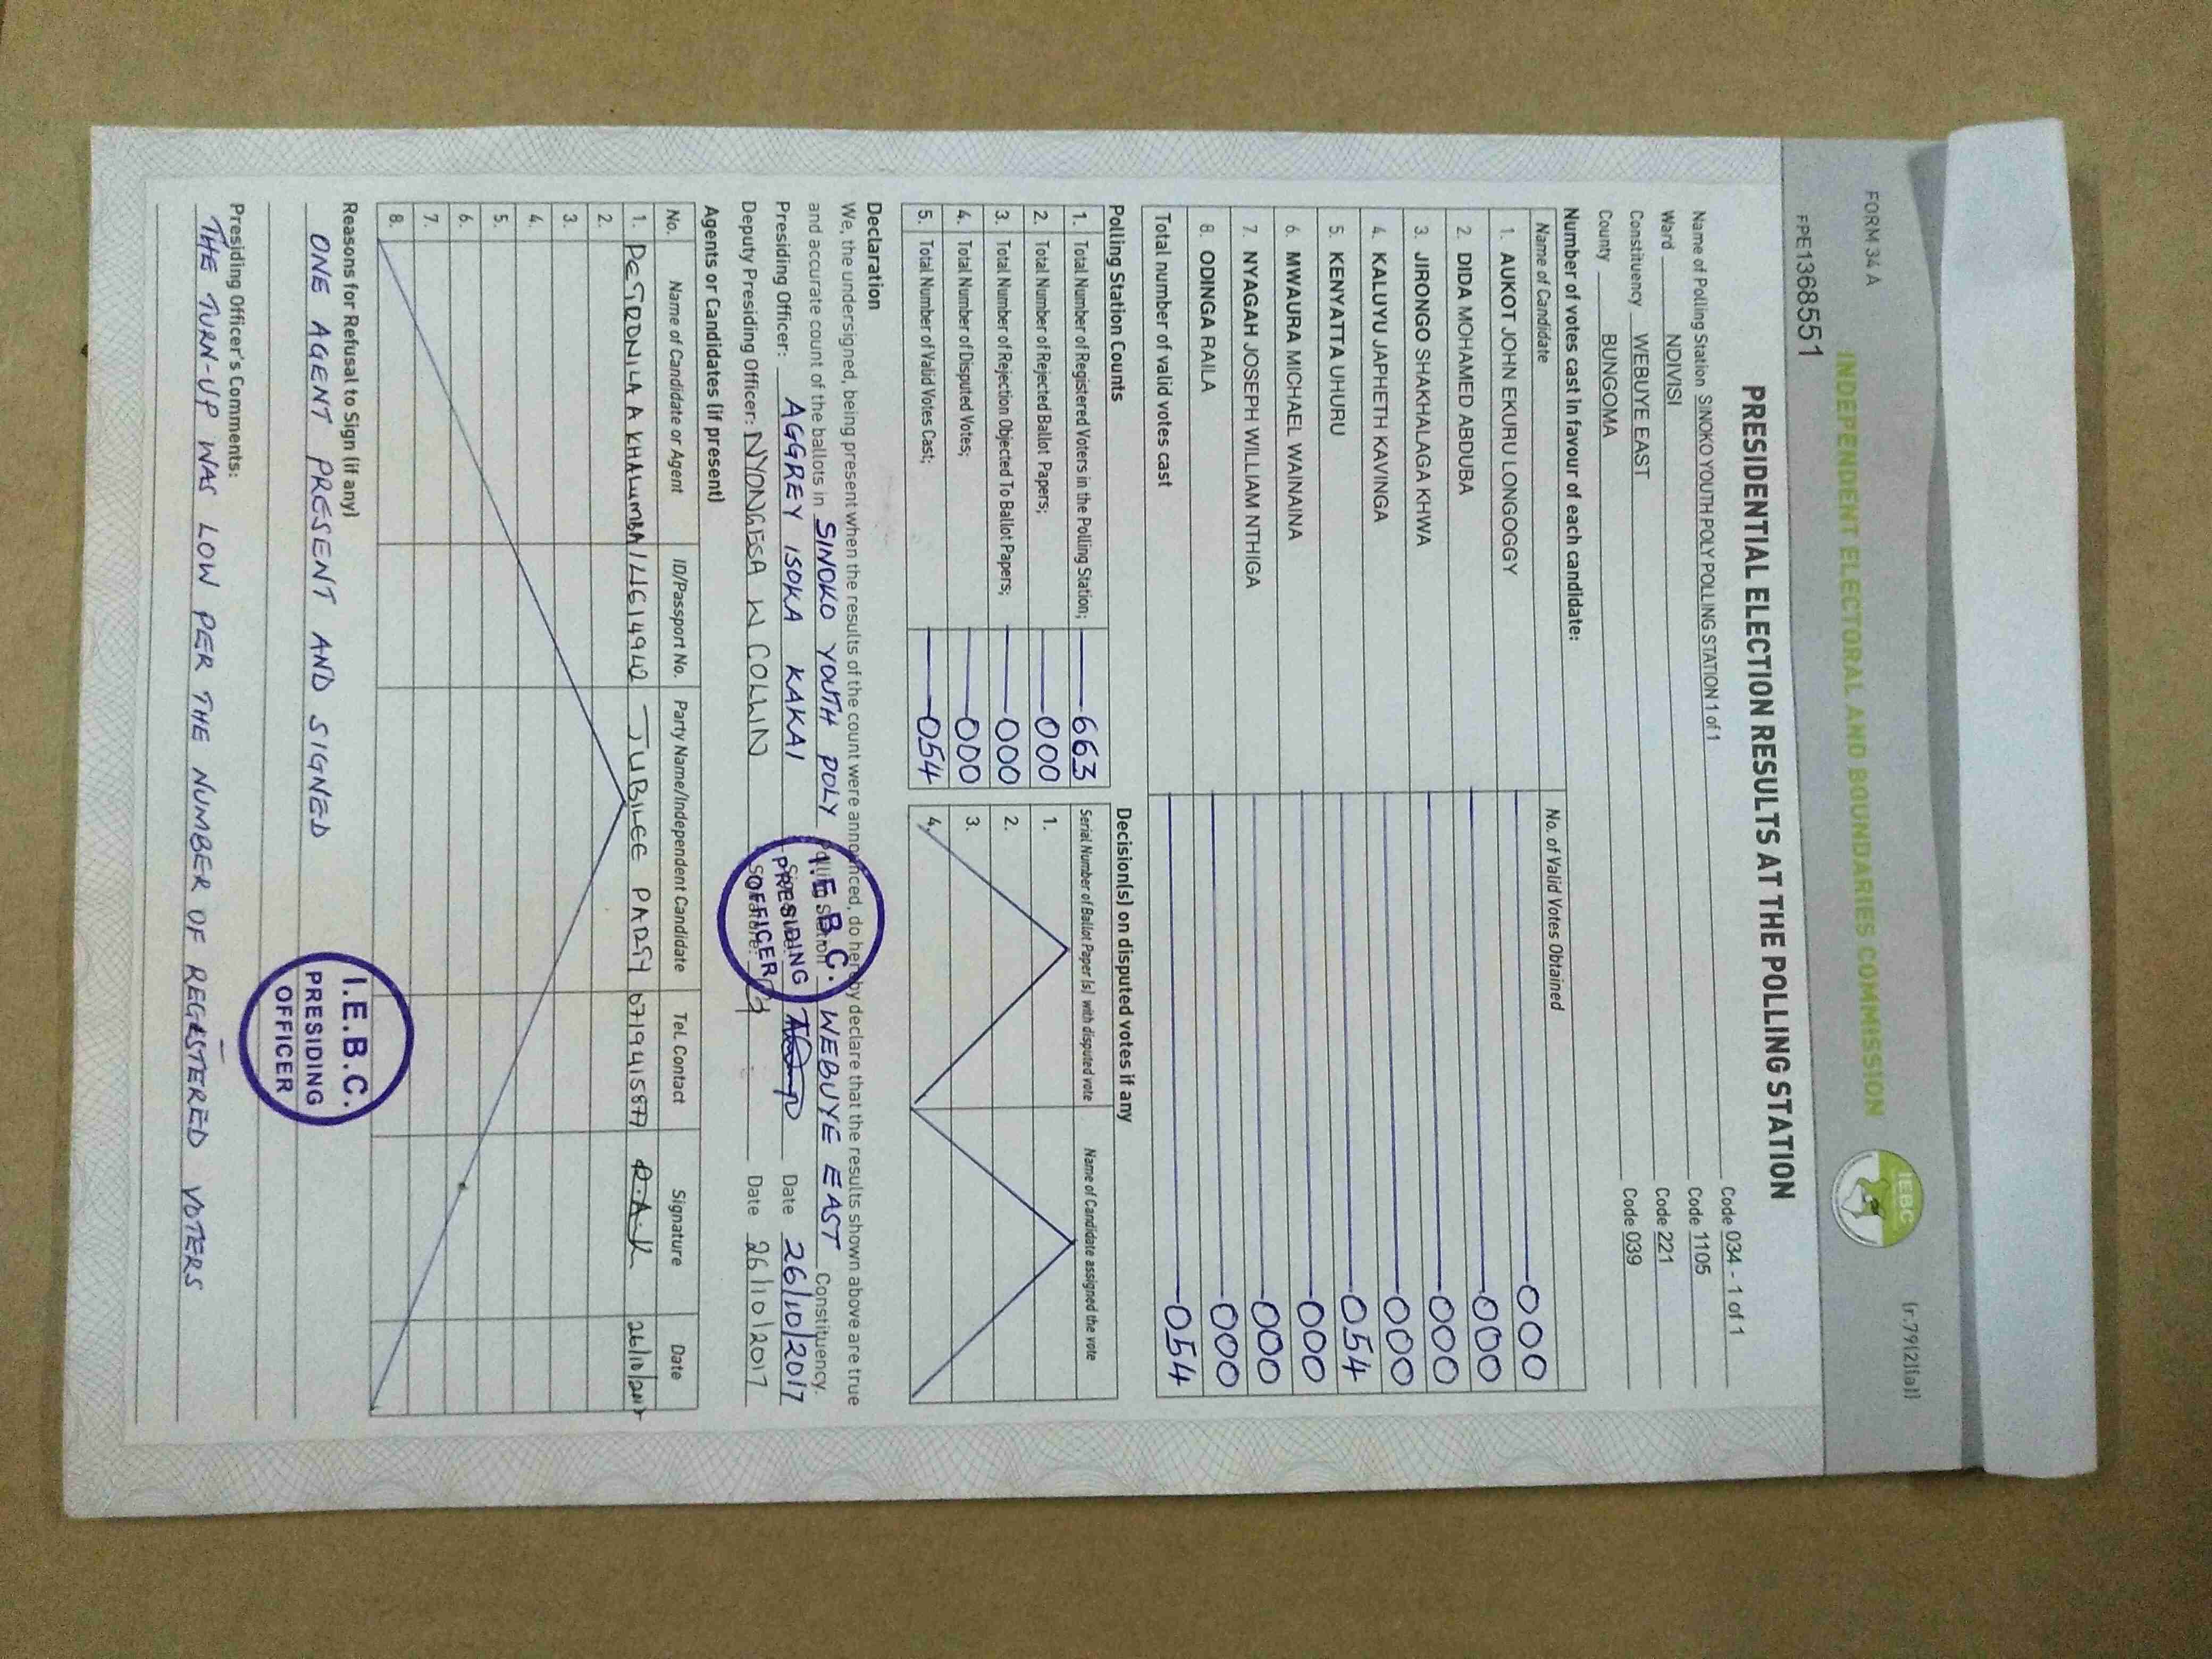 FORM 34 A
(r.79(2)(a))
INDEPENDENT ELECTORAL AND BOUNDARIES COMMISSION
IEBC
FPE1368551
PRESIDENTIAL ELECTION RESULTS AT THE POLLING STATION
Name of Polling Station SINOKO YOUTH POLY POLLING STATION 1 of 1 Code 034 - 1 of 1
Ward NDIVISI Code 1105
Constituency WEBUYE EAST Code 221
County BUNGOMA Code 039
Number of votes cast in favour of each candidate:
Name of Candidate No. of Valid Votes Obtained
1. AUKOT JOHN EKURU LONGOGGY 000
2. DIDA MOHAMED ABDUBA 000
3. JIRONGO SHAKHALAGA KHWA 000
4. KALUYU JAPHETH KAVINGA 000
5. KENYATTA UHURU 054
6. MWAURA MICHAEL WAINAINA 000
7. NYAGAH JOSEPH WILLIAM NTHIGA 000
8. ODINGA RAILA 000
Total number of valid votes cast 054
Polling Station Counts
1. Total Number of Registered Voters in the Polling Station; 663
2. Total Number of Rejected Ballot Papers; 000
3. Total Number of Rejection Objected To Ballot Papers; 000
4. Total Number of Disputed Votes; 000
5. Total Number of Valid Votes Cast; 054
Decision(s) on disputed votes if any
Serial Number of Ballot Paper (s) with disputed vote Name of Candidate assigned the vote
1.
2.
3.
4.
Declaration
We, the undersigned, being present when the results of the count were announced, do hereby declare that the results shown above are true
and accurate count of the ballots in SINOKO YOUTH POLY Polling Station WEBUYE EAST Constituency.
Presiding Officer: AGGREY ISOKA KAKAI Date 26/10/2017
Deputy Presiding Officer: NYONGESA W COLLIN Signature: Date 26/10/2017
I.E.B.C.
PRESIDING
OFFICER
Agents or Candidates (if present)
No. Name of Candidate or Agent ID/Passport No. Party Name/Independent Candidate Tel. Contact Signature Date
1. A KHALUMBA JUBILEE PARTY R.A.K 26/10/2017
2.
3.
4.
5.
6.
7.
8.
Reasons for Refusal to Sign (if any)
ONE AGENT PRESENT AND SIGNED
I.E.B.C.
PRESIDING
OFFICER
Presiding Officer's Comments:
THE TURN-UP WAS LOW PER THE NUMBER OF REGISTERED VOTERS